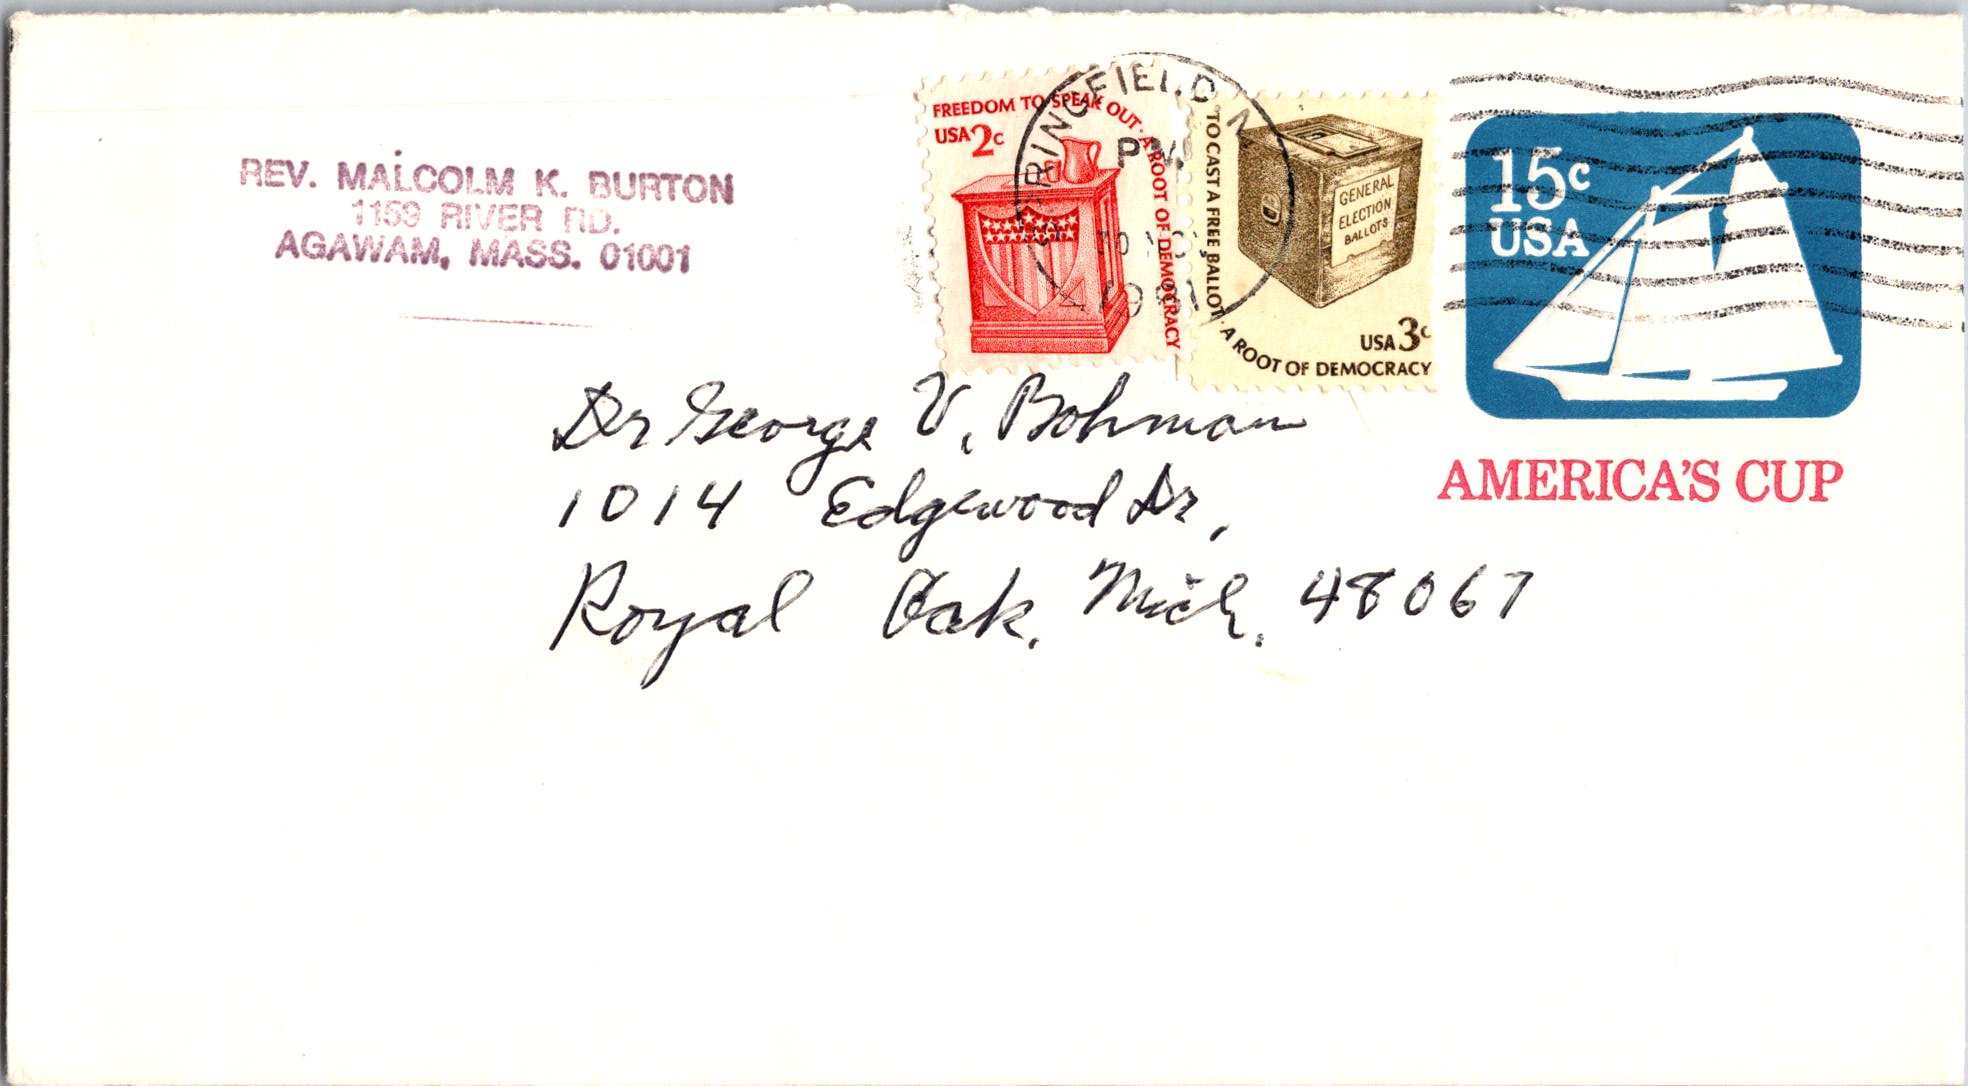 REV. MALCOLM K. BURTON
1159 RIVER RD.
AGAWAM, MASS. 01001
FREEDOM TO SPEAK OUT · A ROOT OF DEMOCRACY
USA 2c
SPRINGFIELD
PM
1981
TO CAST A FREE BALLOT · A ROOT OF DEMOCRACY
GENERAL
ELECTION
BALLOTS
USA 3c
15c
USA
AMERICA'S CUP
Dr George V. Bohman
1014 Edgewood Dr,
Royal Oak. Mich. 48067